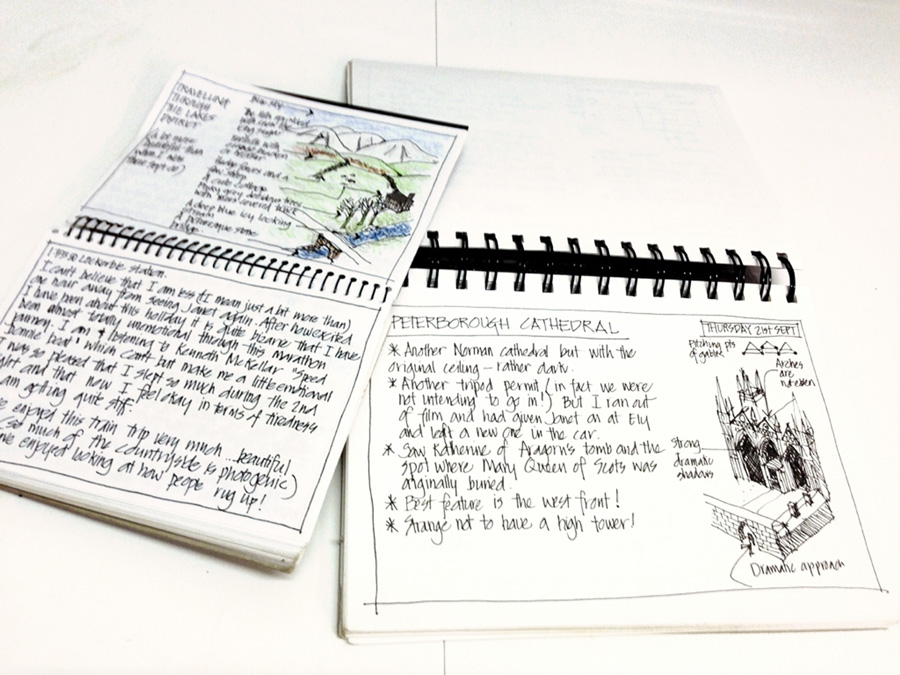 TRAVELLING
THROUGH
THE LAKES
DISTRICT
(A bit more
beautiful than
when I was
Blue sky
The hills sprinkled
with snow like
icing sugar
with
Hedge fences and a
few sheep
A cute cottage
trees
with moss covered
A deep blue icy looking
stream
A picturesque stone
bridge
1 Lockerbie station.
I can't believe that I am less (I mean just a bit more than)
one hour away from seeing Janet again. After how excited
I have been about this holiday it is quite bizarre that I have
been almost totally unemotional through this marathon
journey. I am listening to Kenneth McKellar "Speed
Bonnie Boat" which can't but make me a little emotional
I was so pleased that I slept so much during the 2nd
flight and that now I feel okay in terms of tiredness
am getting quite stiff.
've enjoyed this train trip very much... beautiful
(so much of the countryside is photogenic)
've enjoyed looking at how people rug up!
PETERBOROUGH CATHEDRAL
THURSDAY 21ST SEPT
* Another Norman cathedral but with the
original ceiling - rather dark.
* Another tripod permit (in fact we were
not intending to go in!) But I ran out
of film and had given Janet one at Ely
and left a new one in the car.
* Saw Katherine of Aragorn's tomb and the
spot where Mary Queen of Scots was
originally buried.
* Best feature is the west front!
* Strange not to have a high tower!
Pitching pts
of gable
Arches
are
Strong
dramatic
shadows
Dramatic approach